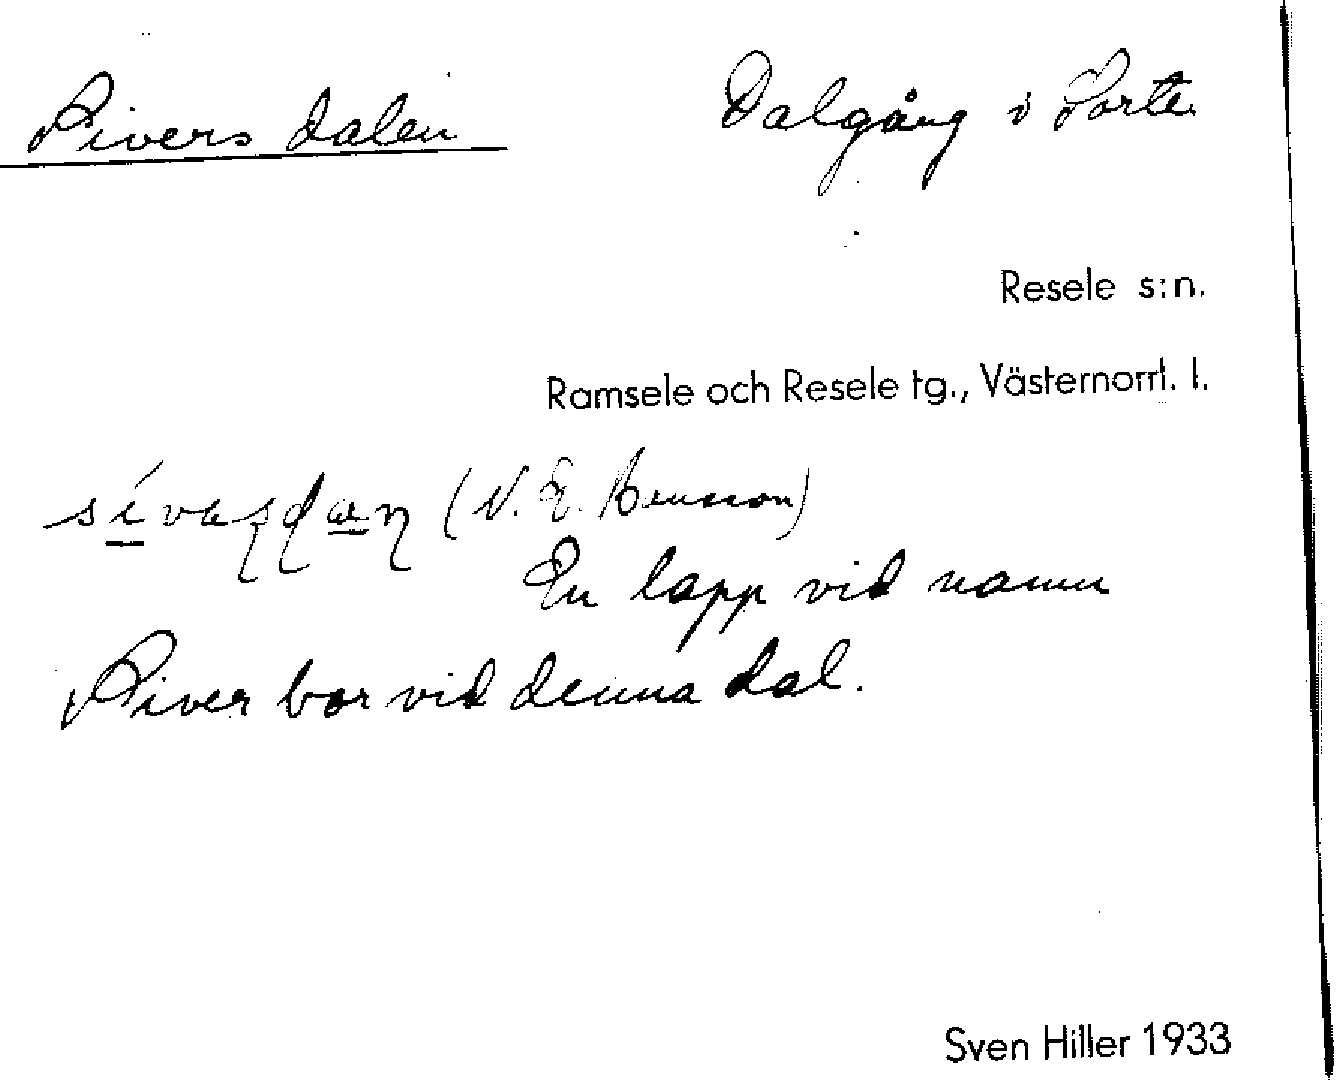 Sivers dalen
Dalgång i Sörte
Resele s:n.
Ramsele och Resele tg., Västernorrl. l.
(N. E. Hansson)
En lapp vid namn
Siver bor vid denna dal.
Sven Hiller 1933